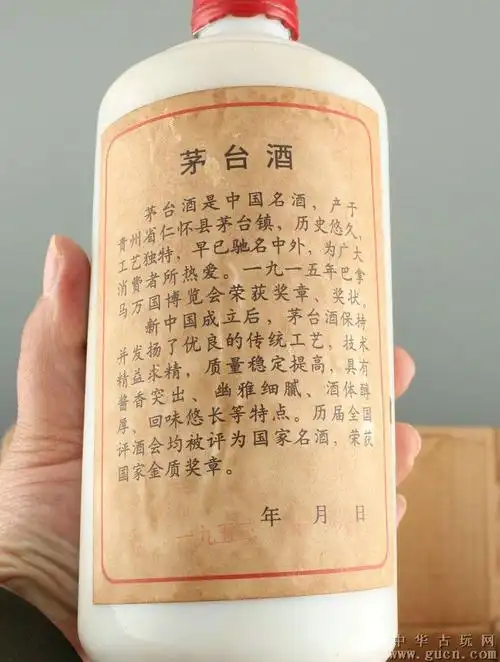 茅台酒
茅台酒是中国名酒，产于
贵州省仁怀县茅台镇，历史悠久，
工艺独特，早已驰名中外，为广大
消费者所热爱。一九一五年巴拿
马万国博览会荣获奖章、奖状。
新中国成立后，茅台酒保持
并发扬了优良的传统工艺，技术
精益求精，质量稳定提高，具有
酱香突出、幽雅细腻、酒体醇
厚、回味悠长等特点。历届全国
评酒会均被评为国家名酒，荣获
国家金质奖章。
年 月 日
一九五
中华古玩网
www.gucn.com